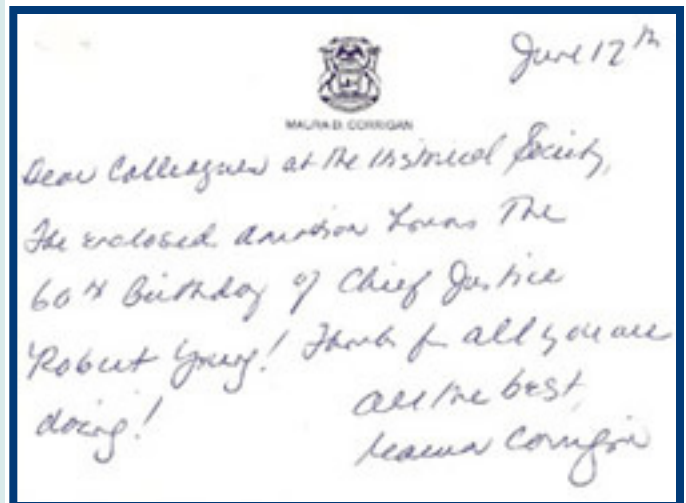 June 12th
MAURA D. CORRIGAN
Dear Colleagues at the Historical Society,
The enclosed donation honors The
60th Birthday of Chief Justice
Robert Young! Thanks for all you are
doing!
All the best,
Maura Corrigan